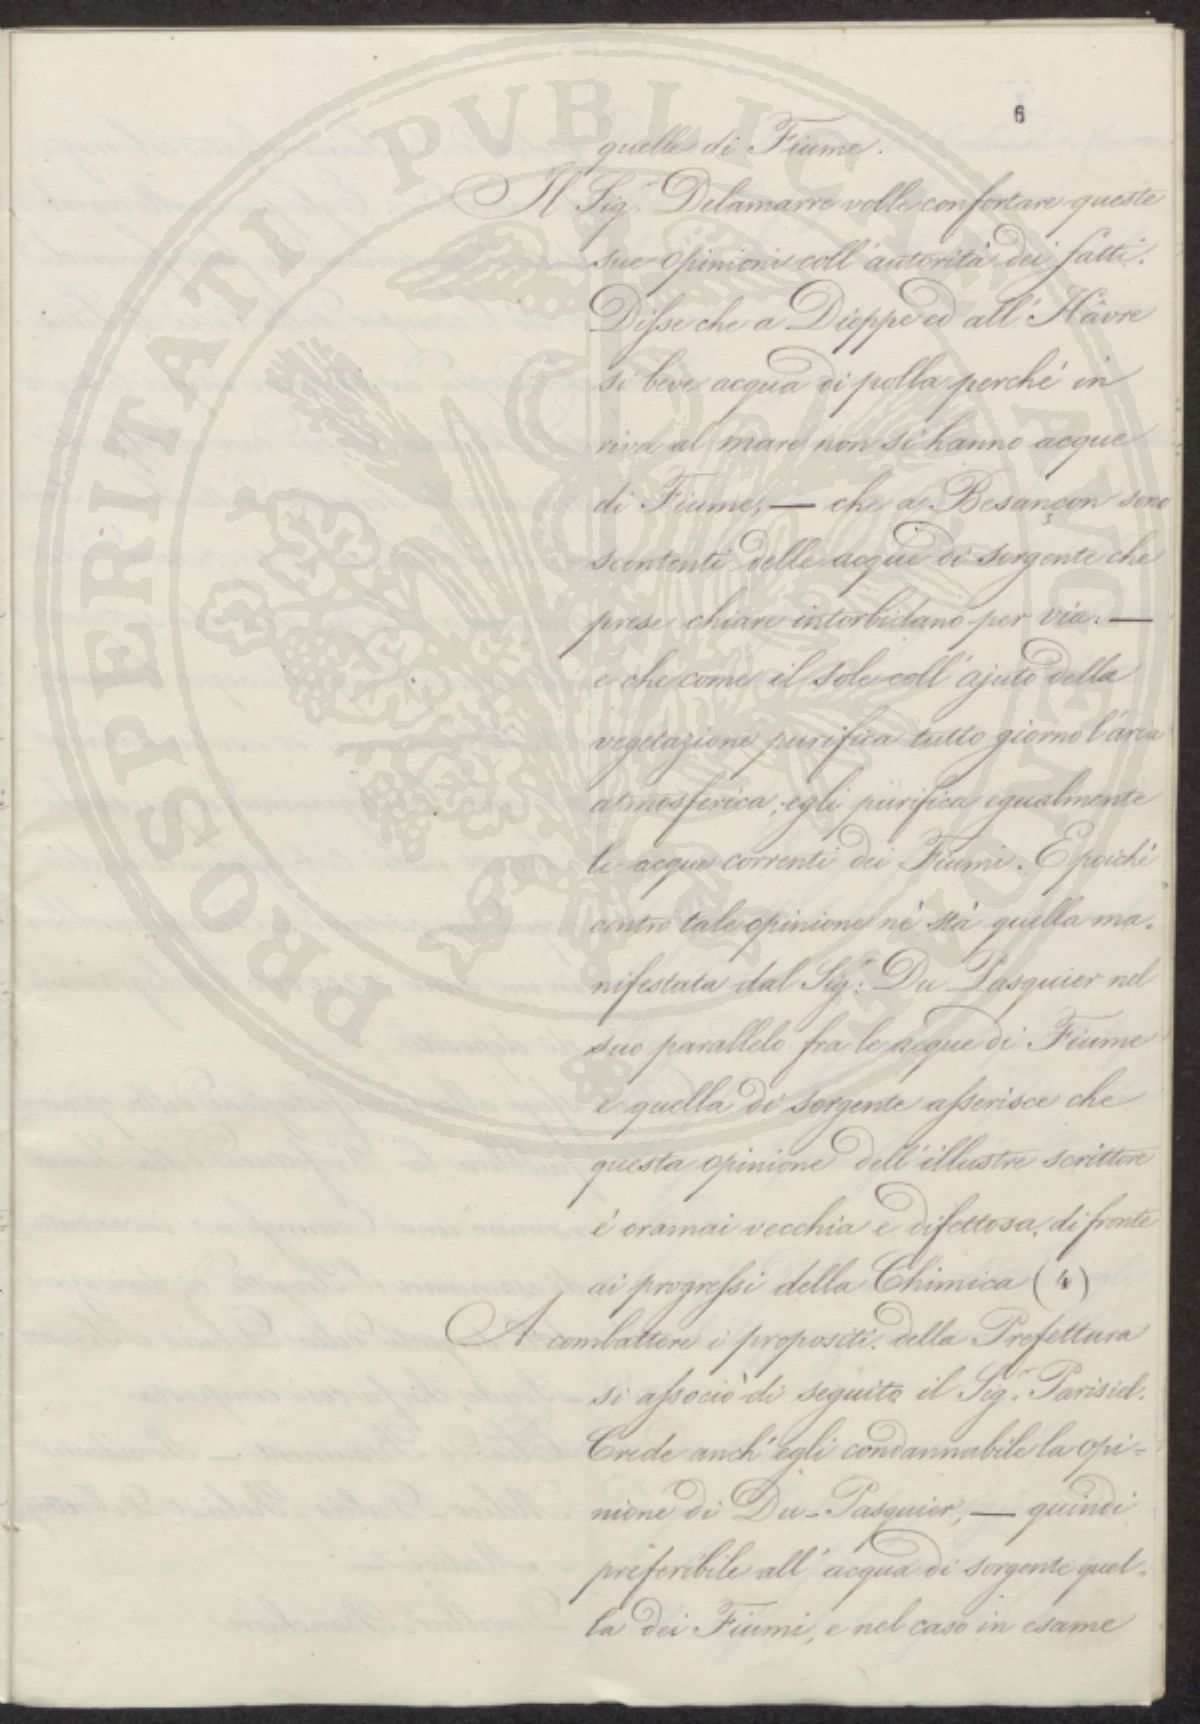 6
quelle di Fiume.
Il Sig.r Delamarre volle confortare queste
sue opinioni coll'autorità dei fatti.
Disse che a Dieppe ed all'Hâvre
si beve acqua di polla perché in
riva al mare non si hanno acque
di Fiume, — che a Besançon sono
scontenti delle acque di sorgente che
prese chiare intorbidano per via. —
e che come il sole coll'ajuto della
vegetazione purifica tutto giorno l'aria
atmosferica, egli purifica egualmente
le acque correnti dei Fiumi. E poiché
contro tale opinione né stà quella ma-
nifestata dal Sig.r Du Pasquier nel
suo parallelo fra le acque di Fiume
e quella di sorgente asserisce che
questa opinione dell'illustre scrittore
é oramai vecchia e difettosa, di fronte
ai progressi della Chimica (4)
A combattere i propositi della Prefettura
si associò di seguito il Sig.r Parisiel.
Crede anch'egli condannabile la opi=
nione di Du-Pasquier, — quindi
preferibile all'acqua di sorgente quel-
la dei Fiumi, e nel caso in esame
PROSPERITATI PVBLICAE